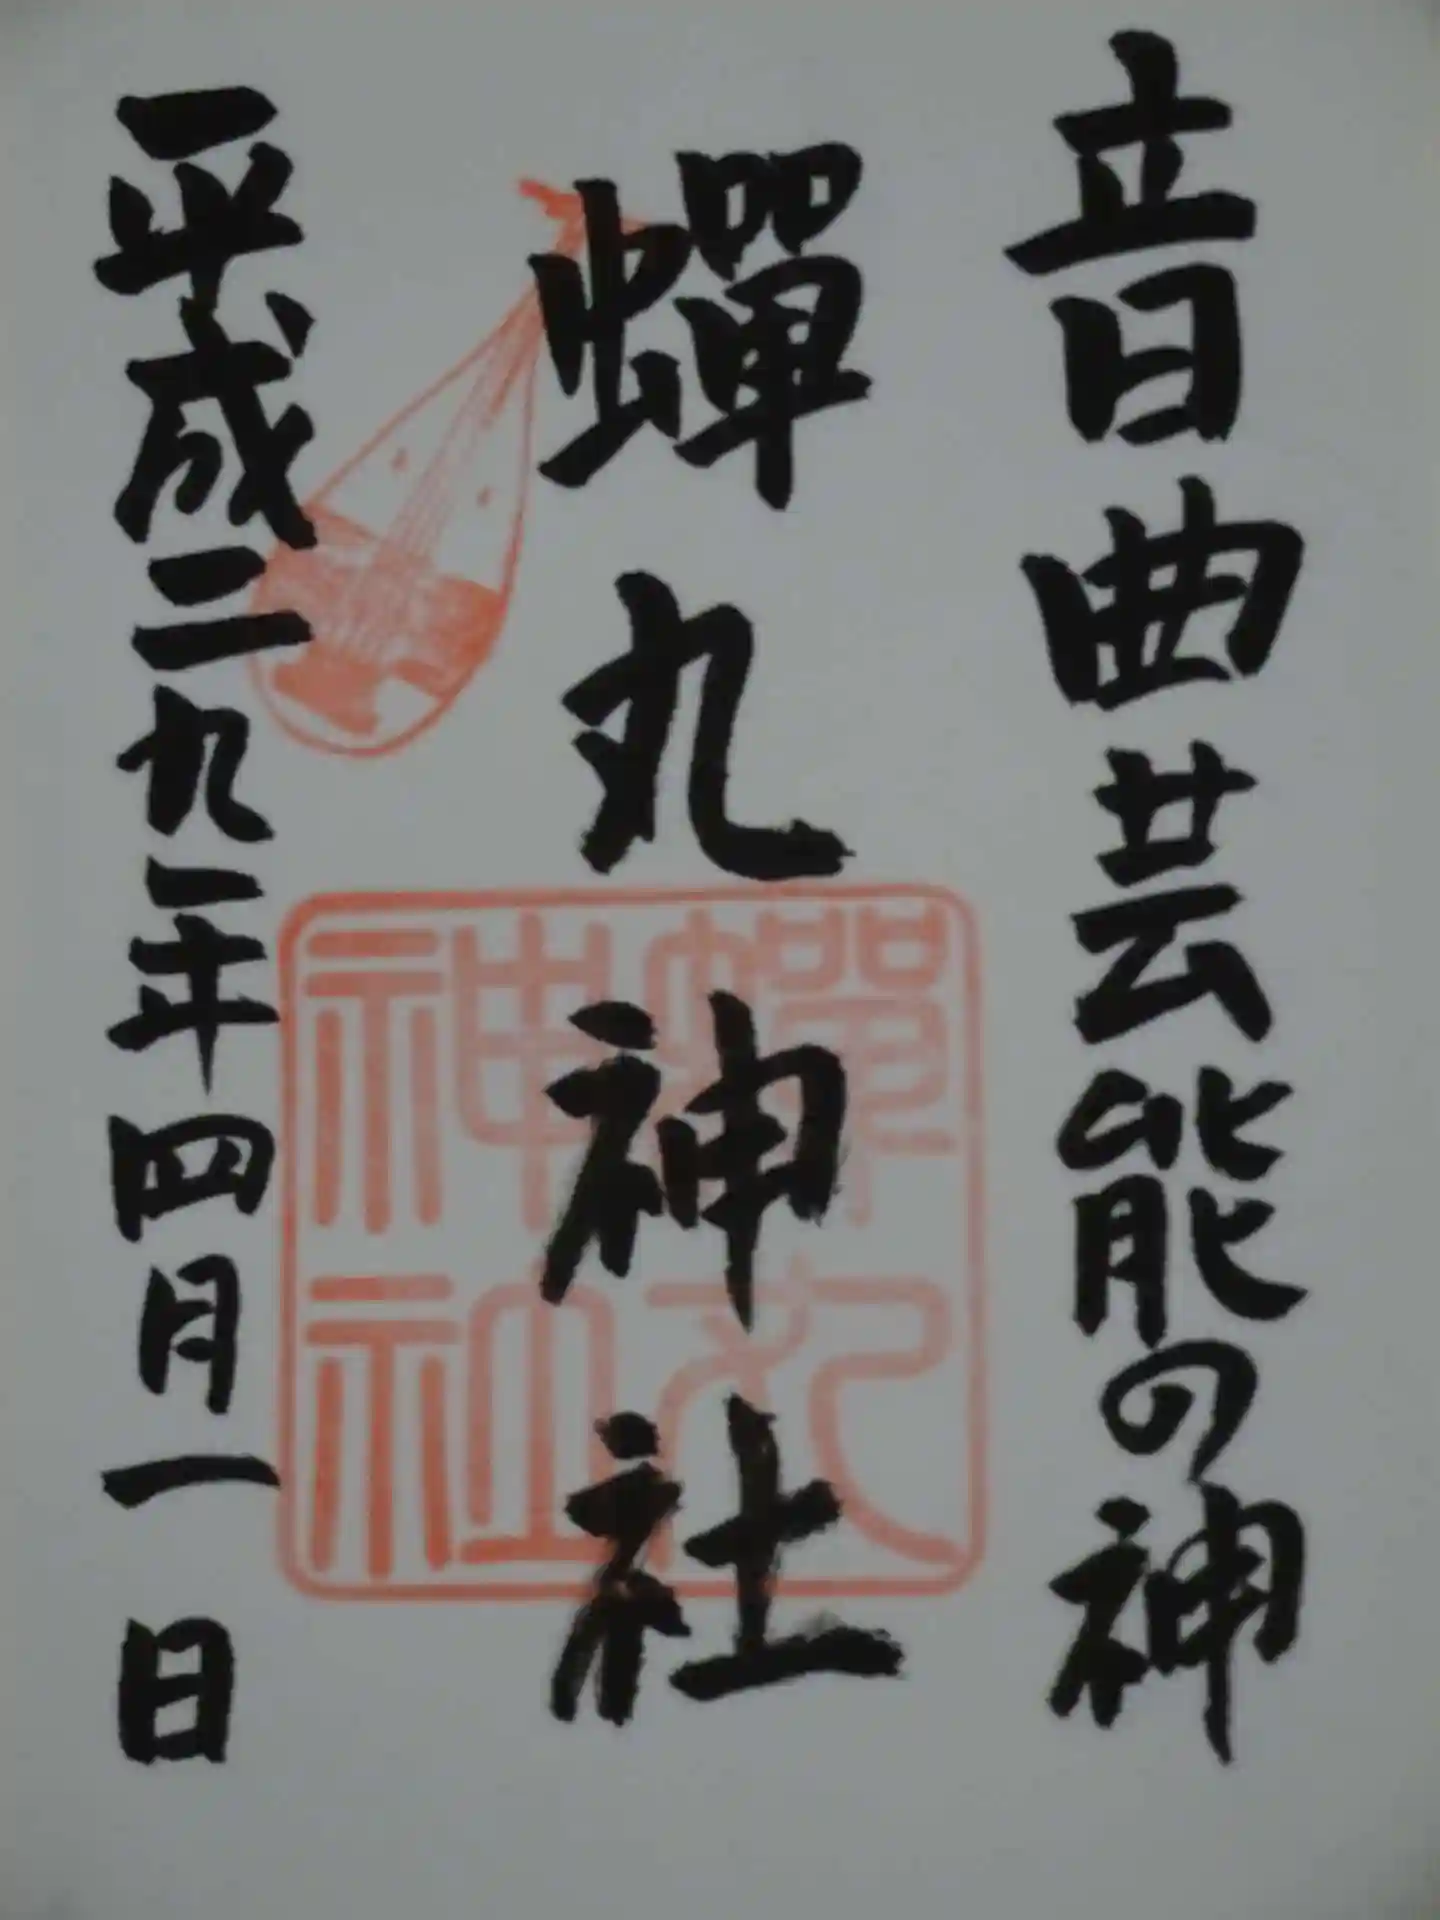 音曲芸能の神
蟬丸神社
平成二九年四月一日
蟬丸
神社